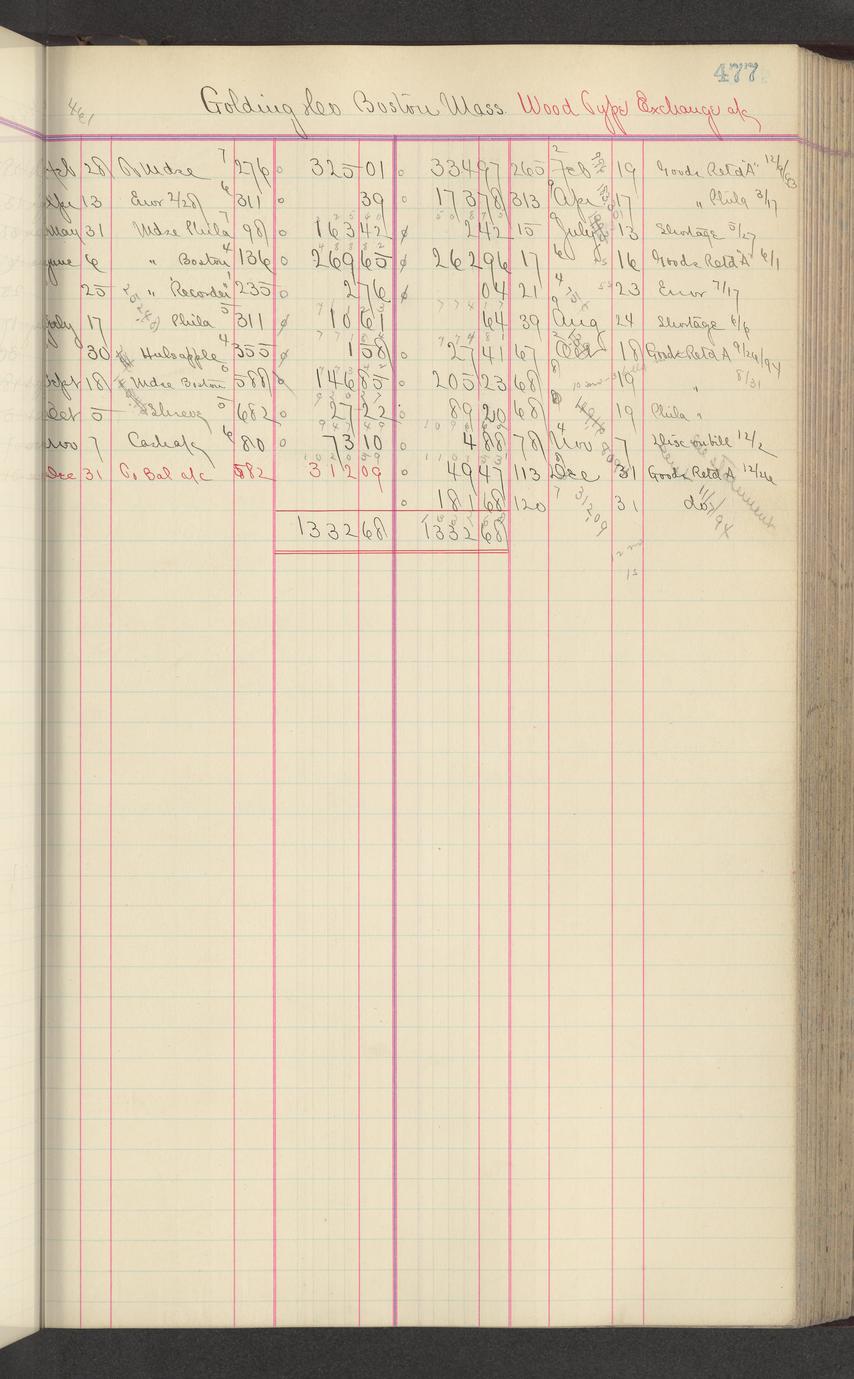 477
461 Golding & Co Boston Mass. Wood Type Exchange a/c
Feb 28 To Mdse 7 276 325 01 334 97 265 2 Feb 19 Goods Retd "A" 12/9/93
Apr 13 Error 2/28 6 311 39 173 78 313 9 Apr 17 " Phila 3/17
May 31 Mdse Phila 7 98 163 42 2 42 15 9 July 13 Shortage 5/27
June 6 " Boston 4 136 269 65 262 96 17 6 16 Goods Retd "A" 6/1
25 " "Recorder" 1 235 2 76 04 21 4 23 Error 7/17
July 17 Phila 5 311 10 61 64 39 9 Aug 24 Shortage 6/6
30 Hulsapple 4 355 1 58 27 41 67 2 Oct 18 Goods Retd A 9/24/94
Sept 18 Mdse Boston 6 588 146 85 205 23 68 8 19 " 8/31
Oct 5 Shreve 5 682 27 22 89 20 68 8 19 Phila "
Nov 7 Cash a/c 6 80 73 10 4 88 78 4 Nov 7 Disc on bill 12/2
Dec 31 To Bal a/c 582 312 09 49 47 113 8 Dec 31 Goods Retd A 12/26
181 68 120 7 31 do 11/1/94
1332 68 1332 68
312.09